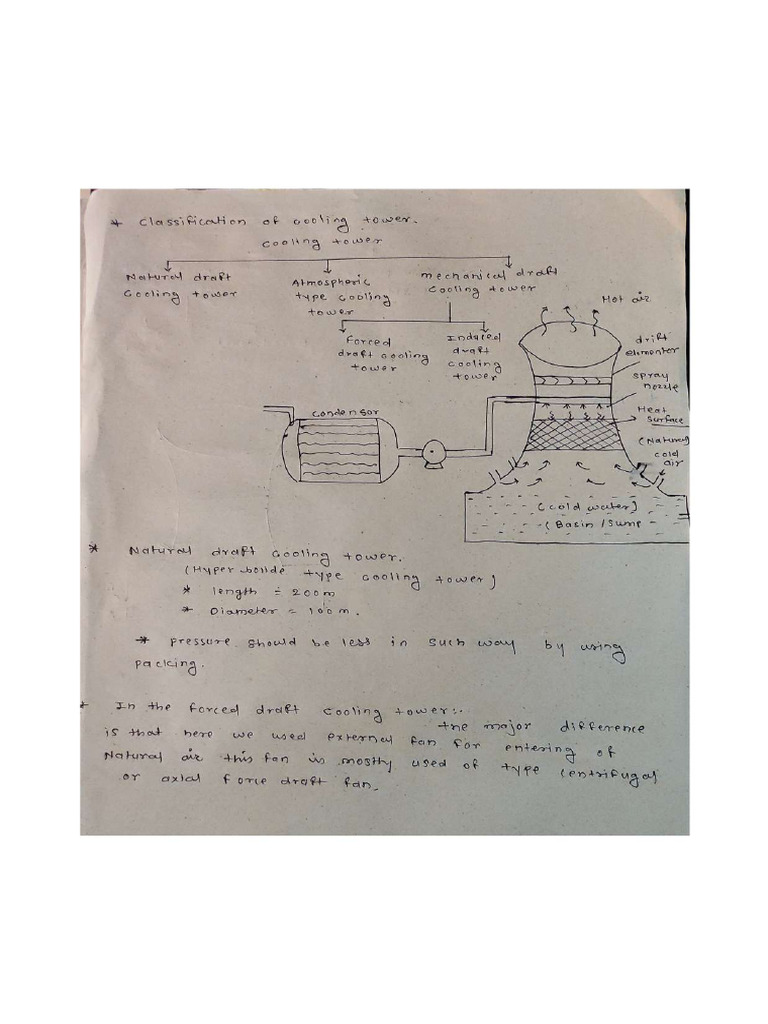 * Classification of cooling tower.
cooling tower
Natural draft
Cooling tower
Atmospheric
type cooling
tower
mechanical draft
cooling tower
Forced
draft cooling
tower
Induced
draft
cooling
tower
Hot air
drift
elimenter
spray
nozzle
Heat
surface
(Natural)
cold
air
condensor
(cold water)
(Basin/Sump
* Natural draft cooling tower.
(Hyper bolide type cooling tower)
* length = 200m
* Diameter = 100m.
* pressure should be less in such way by using
packing.
* In the forced draft cooling tower:.
the major difference
is that here we used external fan for entering of
Natural air this fan is mostly used of type centrifugal
or axial force draft fan.